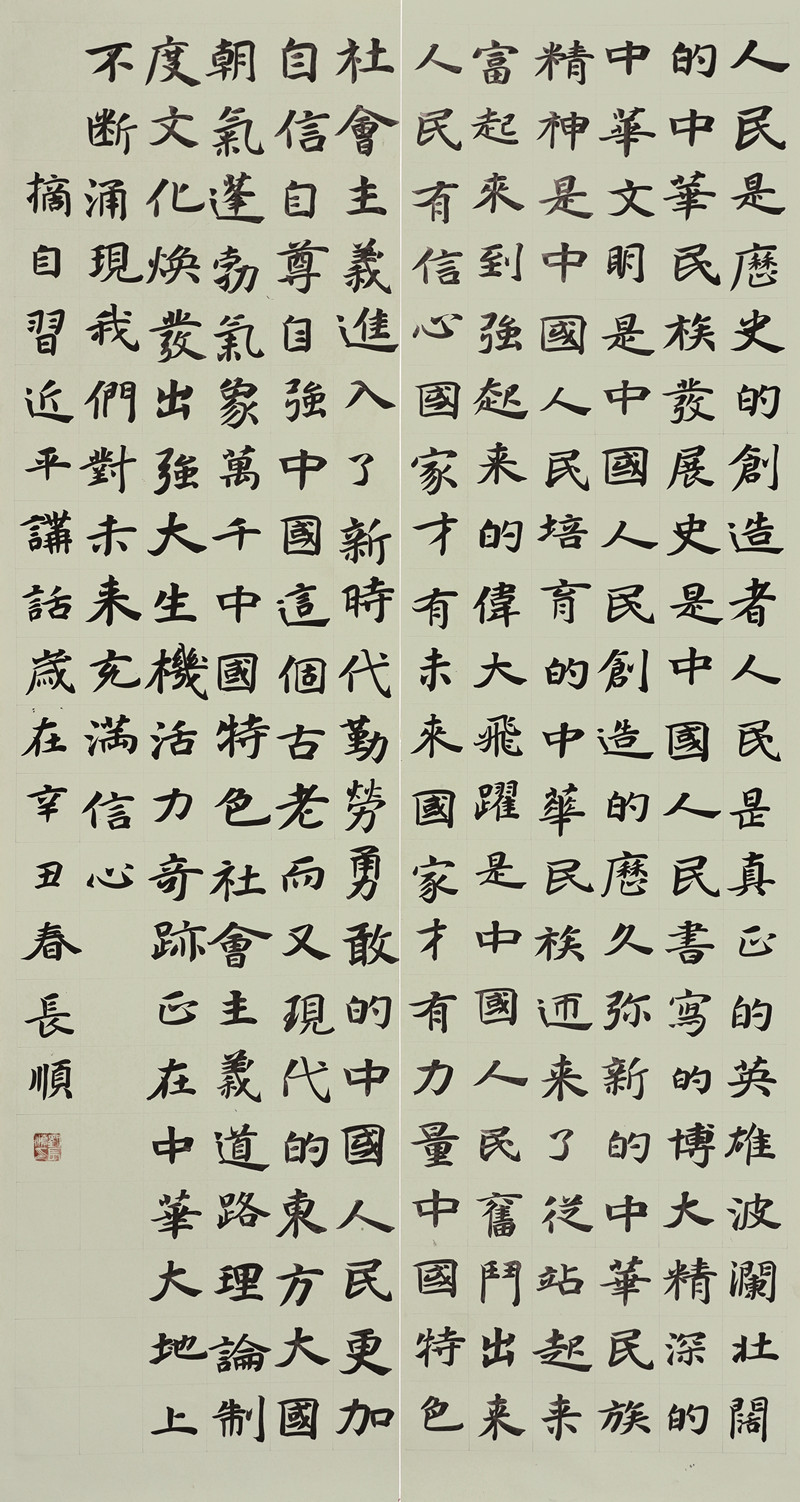 人民是歷史的創造者人民是真正的英雄波瀾壯闊
的中華民族發展史是中國人民書寫的博大精深的
中華文明是中國人民創造的歷久弥新的中華民族
精神是中國人民培育的中華民族迊来了從站起来
富起來到強起来的偉大飛躍是中國人民奮鬥出来
人民有信心國家才有未來國家才有力量中國特色
社會主義進入了新時代勤勞勇敢的中國人民更加
自信自尊自強中國這個古老而又現代的東方大國
朝氣蓬勃氣象萬千中國特色社會主義道路理論制
度文化煥發出強大生機活力奇跡正在中華大地上
不断涌現我們對未来充滿信心
摘自習近平講話歲在辛丑春長順